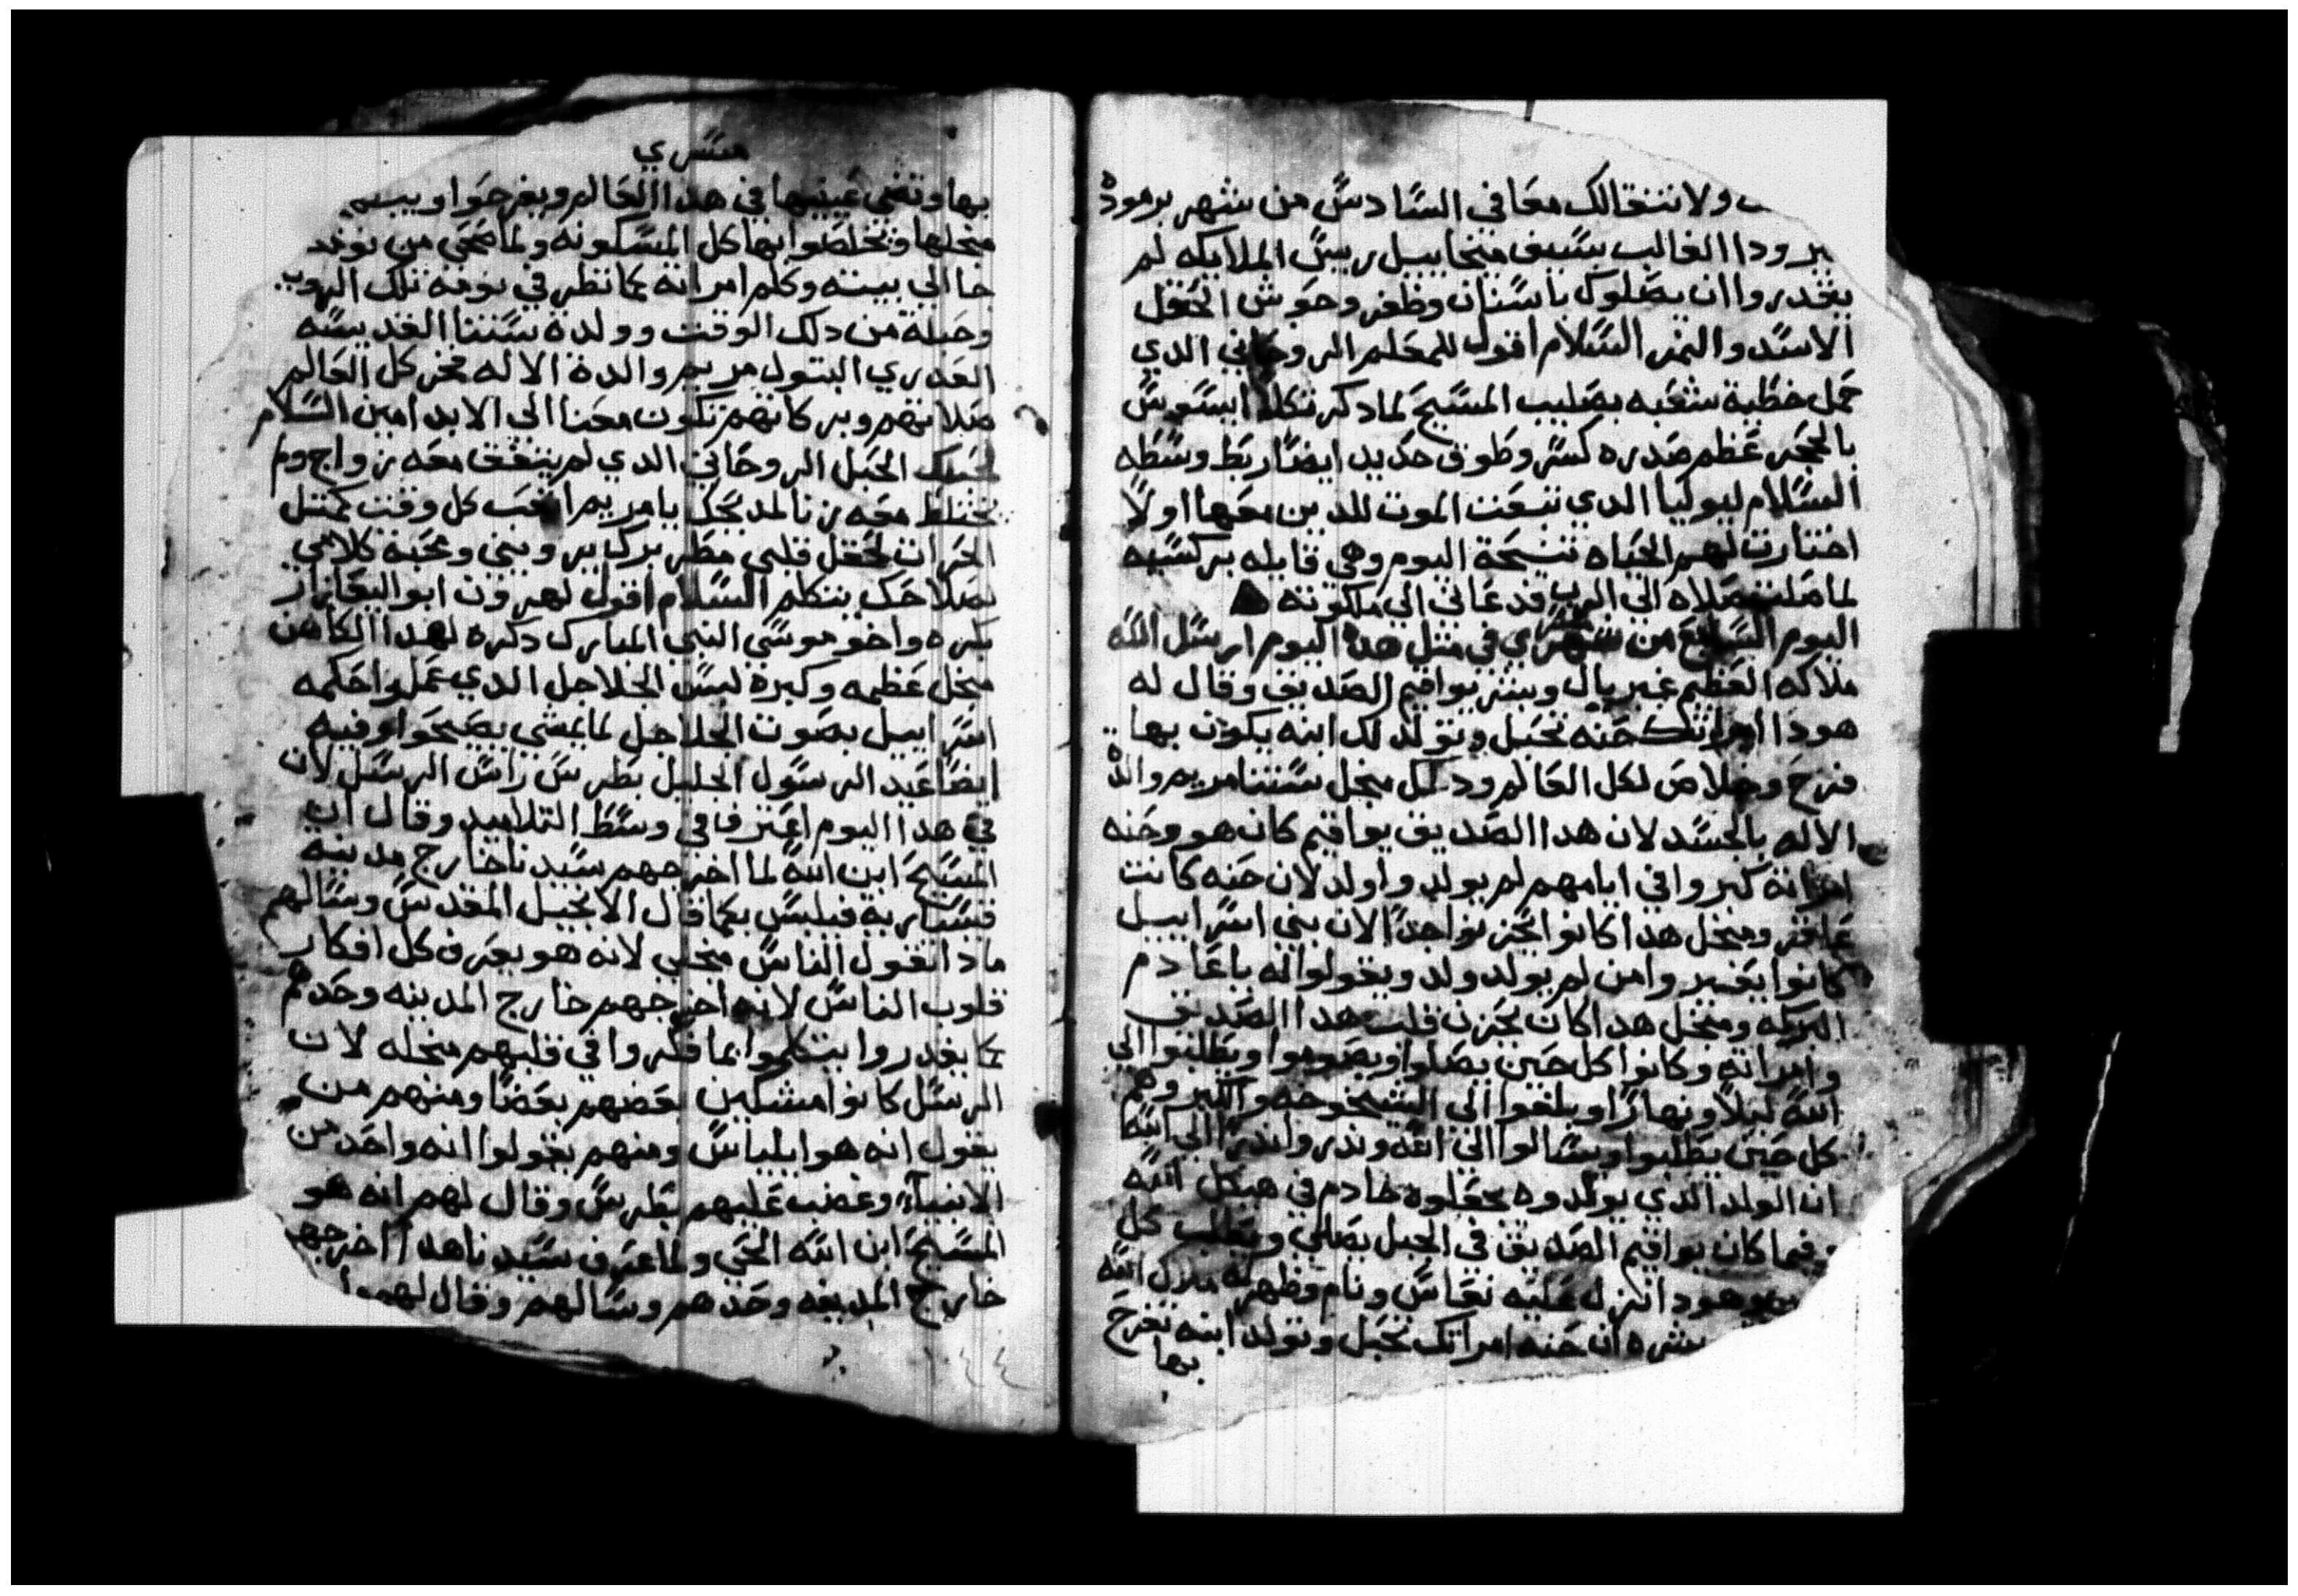 ولا تنتقالك معا في السادس من شهر برموده
يرودا الغالب بسيف ميخاييل ريس الملايكه لم
يقدروا ان يصلوك باسنان وظفر وحوش الحقل
الاسد والنمر السلام اقول للمعلم الروحاني الدي
حمل خطية شعبه بصليب المسيح لما دكر تكلا ايسوس
بالحجر عظم صدره كسر وطوق حديد ايضا ربط وسطه
السلام ليوكيا الدي تبعت الموت للدين معها اولا
اختارت لهم الحياه تسبحة اليوم وهي قايله بركسيه
لما صلت صلاه الي الرب قد عاني الي ملكوته
اليوم السابع من شهر ي في متل هدا اليوم ارسل الله
ملاكه العظيم غبريال وبشر يواقيم الصديق وقال له
هودا امراتك حنه تحبل وتولد لك ابنه يكون بها
فرح وخلاص لكل العالم ودلك منجل ستنا مريم والدة
الاله بالجسد لان هدا الصديق يواقيم كان هو وحنه
امراته كبروا في ايامهم لم يولد واولد لان حنه كانت
عاقر ومنجل هدا كانوا يحزنوا جدا لان بني اسراييل
كانوا يعيروا من لم يولد ولد ويقولوا له يا عادم
البركه ومنجل هدا كان يحزن قلب هدا الصديق
وامراته وكانوا كل حين يصلوا ويصوموا ويطلبوا الي
الله ليلا ونهارا وبلغوا الي الشيخوخه والكبر وهم
كل حين يطلبوا ويسالوا الي الله وندروا ندرا الي الله
ان الولد الدي يولدوه يجعلوه خادم في هيكل الله
وفيما كان يواقيم الصديق في الجبل يصلي ويطلب كل
هودا انزل عليه نعاس ونام وظهر له ملاك الله
بشره ان حنه امراتك تحبل وتولد ابنه تفرح
بها
ي
بها وتضي عينيها في هدا العالم ويفرحوا ويبسم
منجلها ويخلصوا بها كل المسكونه ولما صحى من نومه
جا الي بيته وكلم امراته بما نظر في نومه تلك الرويا
وحبلة من دلك الوقت وولدة ستنا القديسه
العدري البتول مريم والدة الاله فخر كل العالم
صلاتهم وبركاتهم تكون معنا الي الابد امين السلام
لحبلك الحبل الروحاني الدي لم يتفق معه زواج ولم
يختلط معه زنا لمدبحك يا مريم احب كل وقت كمتل
الحرات لحقل قلبي مطر بركه يرويني ومحبة كلامي
بصلاحك ينظم السلام اقول لهرون ابو اليعازار
بكره واخو موسي النبي المبارك دكره لهدا الكاهن
منجل عظمه وكبره لبس الجلاجل الدي عملوا حكمه
اسراييل بصوت الجلاجل لما يمشي يصيحوا وفيه
ايضا عيد الرسول الجليل بطرس راس الرسل لان
في هدا اليوم اعترف في وسط التلاميد وقال ان
المسيح ابن الله لما اخرجهم سيدنا خارج مدينة
قيسارية فيلبس كما قال الانجيل المقدس وسالهم
مادا تقول الناس منجلي لانه هو يعرف كل افكار
قلوب الناس لانه اخرجهم خارج المدينه وحدهم
كا يقدروا يتكلموا بما فكروا في قلبهم منجله لان
الرسل كانوا مشككين بعضهم بعضا ومنهم من
يقول انه هو ايلياس ومنهم يقولوا انه واحد من
الانبيا وغضب عليهم بطرس وقال لهم انه هو
المسيح ابن الله الحي ولما عرف سيدنا هدا اخرجهم
خارج المدينه وحدهم وسالهم وقال لهم